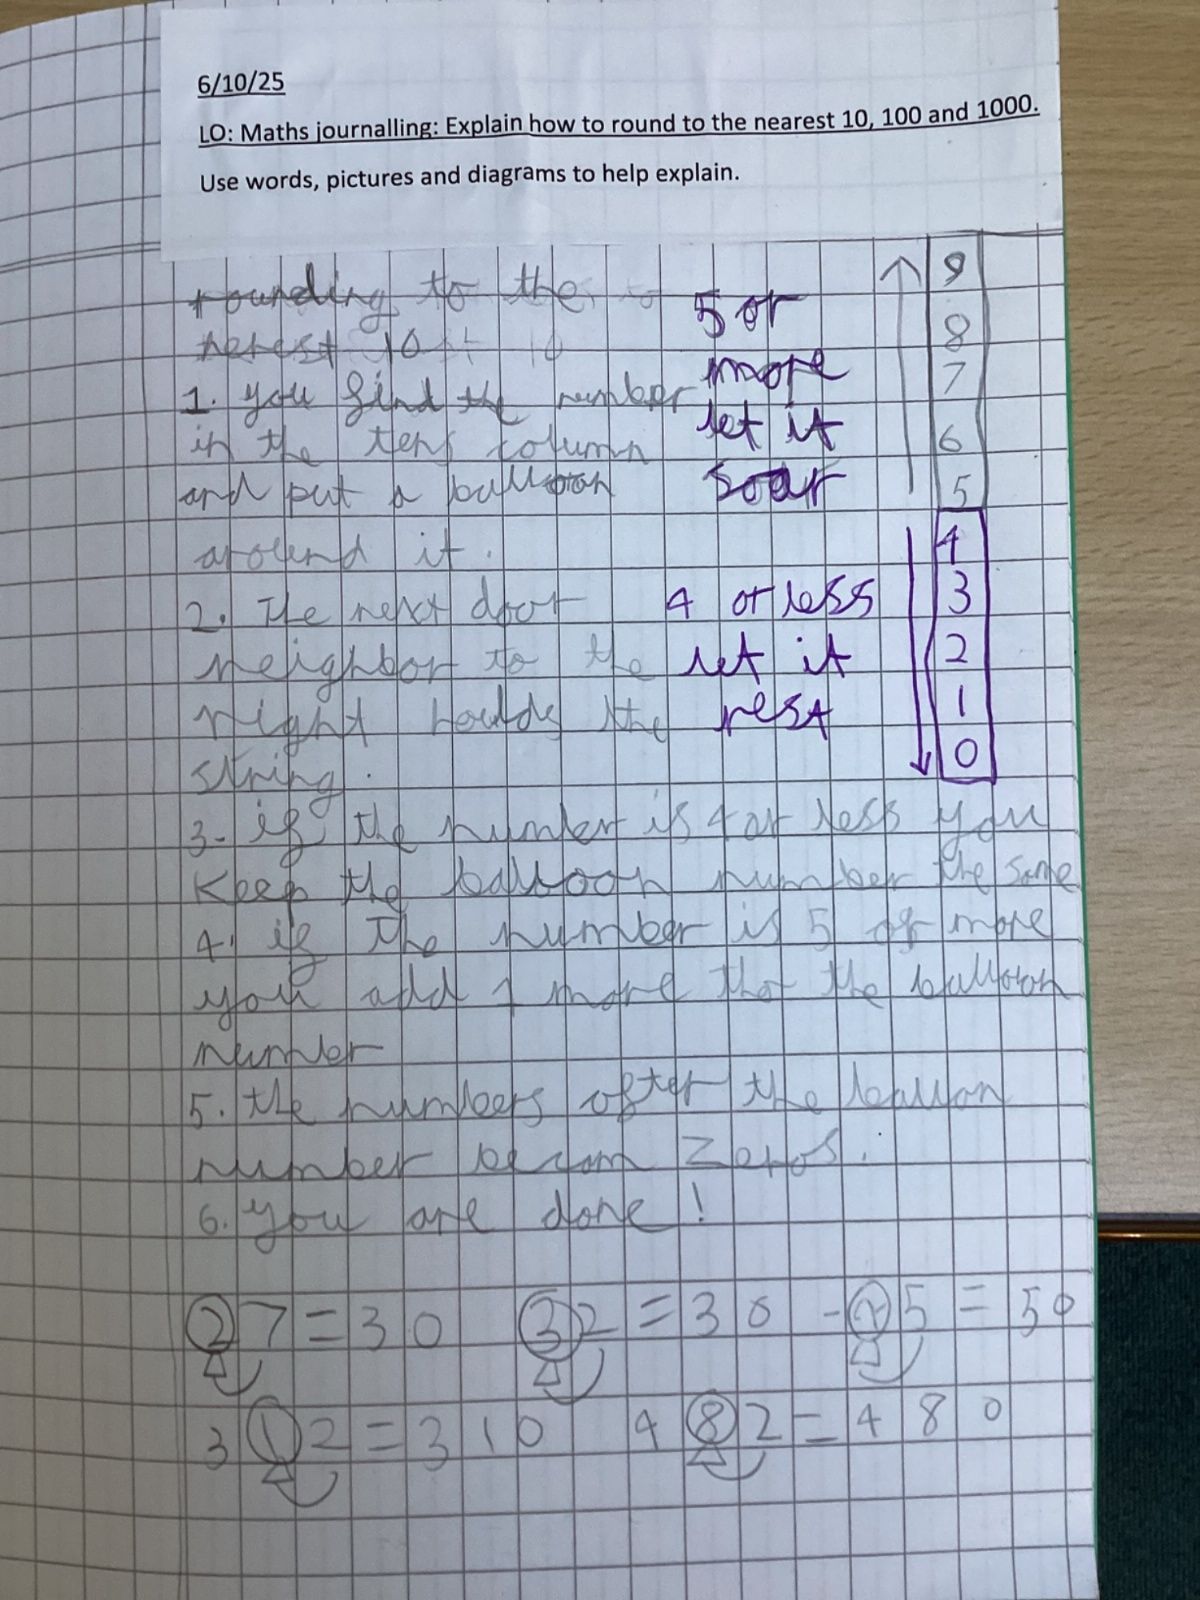 6/10/25
LO: Maths journalling: Explain how to round to the nearest 10, 100 and 1000.
Use words, pictures and diagrams to help explain.
rounding to the
nerest 10
1. you find the number
in the tens column
and put a balloon
around it.
2. The next door
neighbor to the
right houlds the
string.
5 or
more
let it
soar
4 or less
let it
rest
9
8
7
6
5
4
3
2
1
0
3. if the number is 4 or less you
Keep the balloon number the same
4. if the number is 5 or more
you add 1 more that the balloon
number
5. the numbers after the ballon
number becom zeros.
6. you are done!
27 = 30 32 = 30 5 = 50
312 = 310 482 = 480